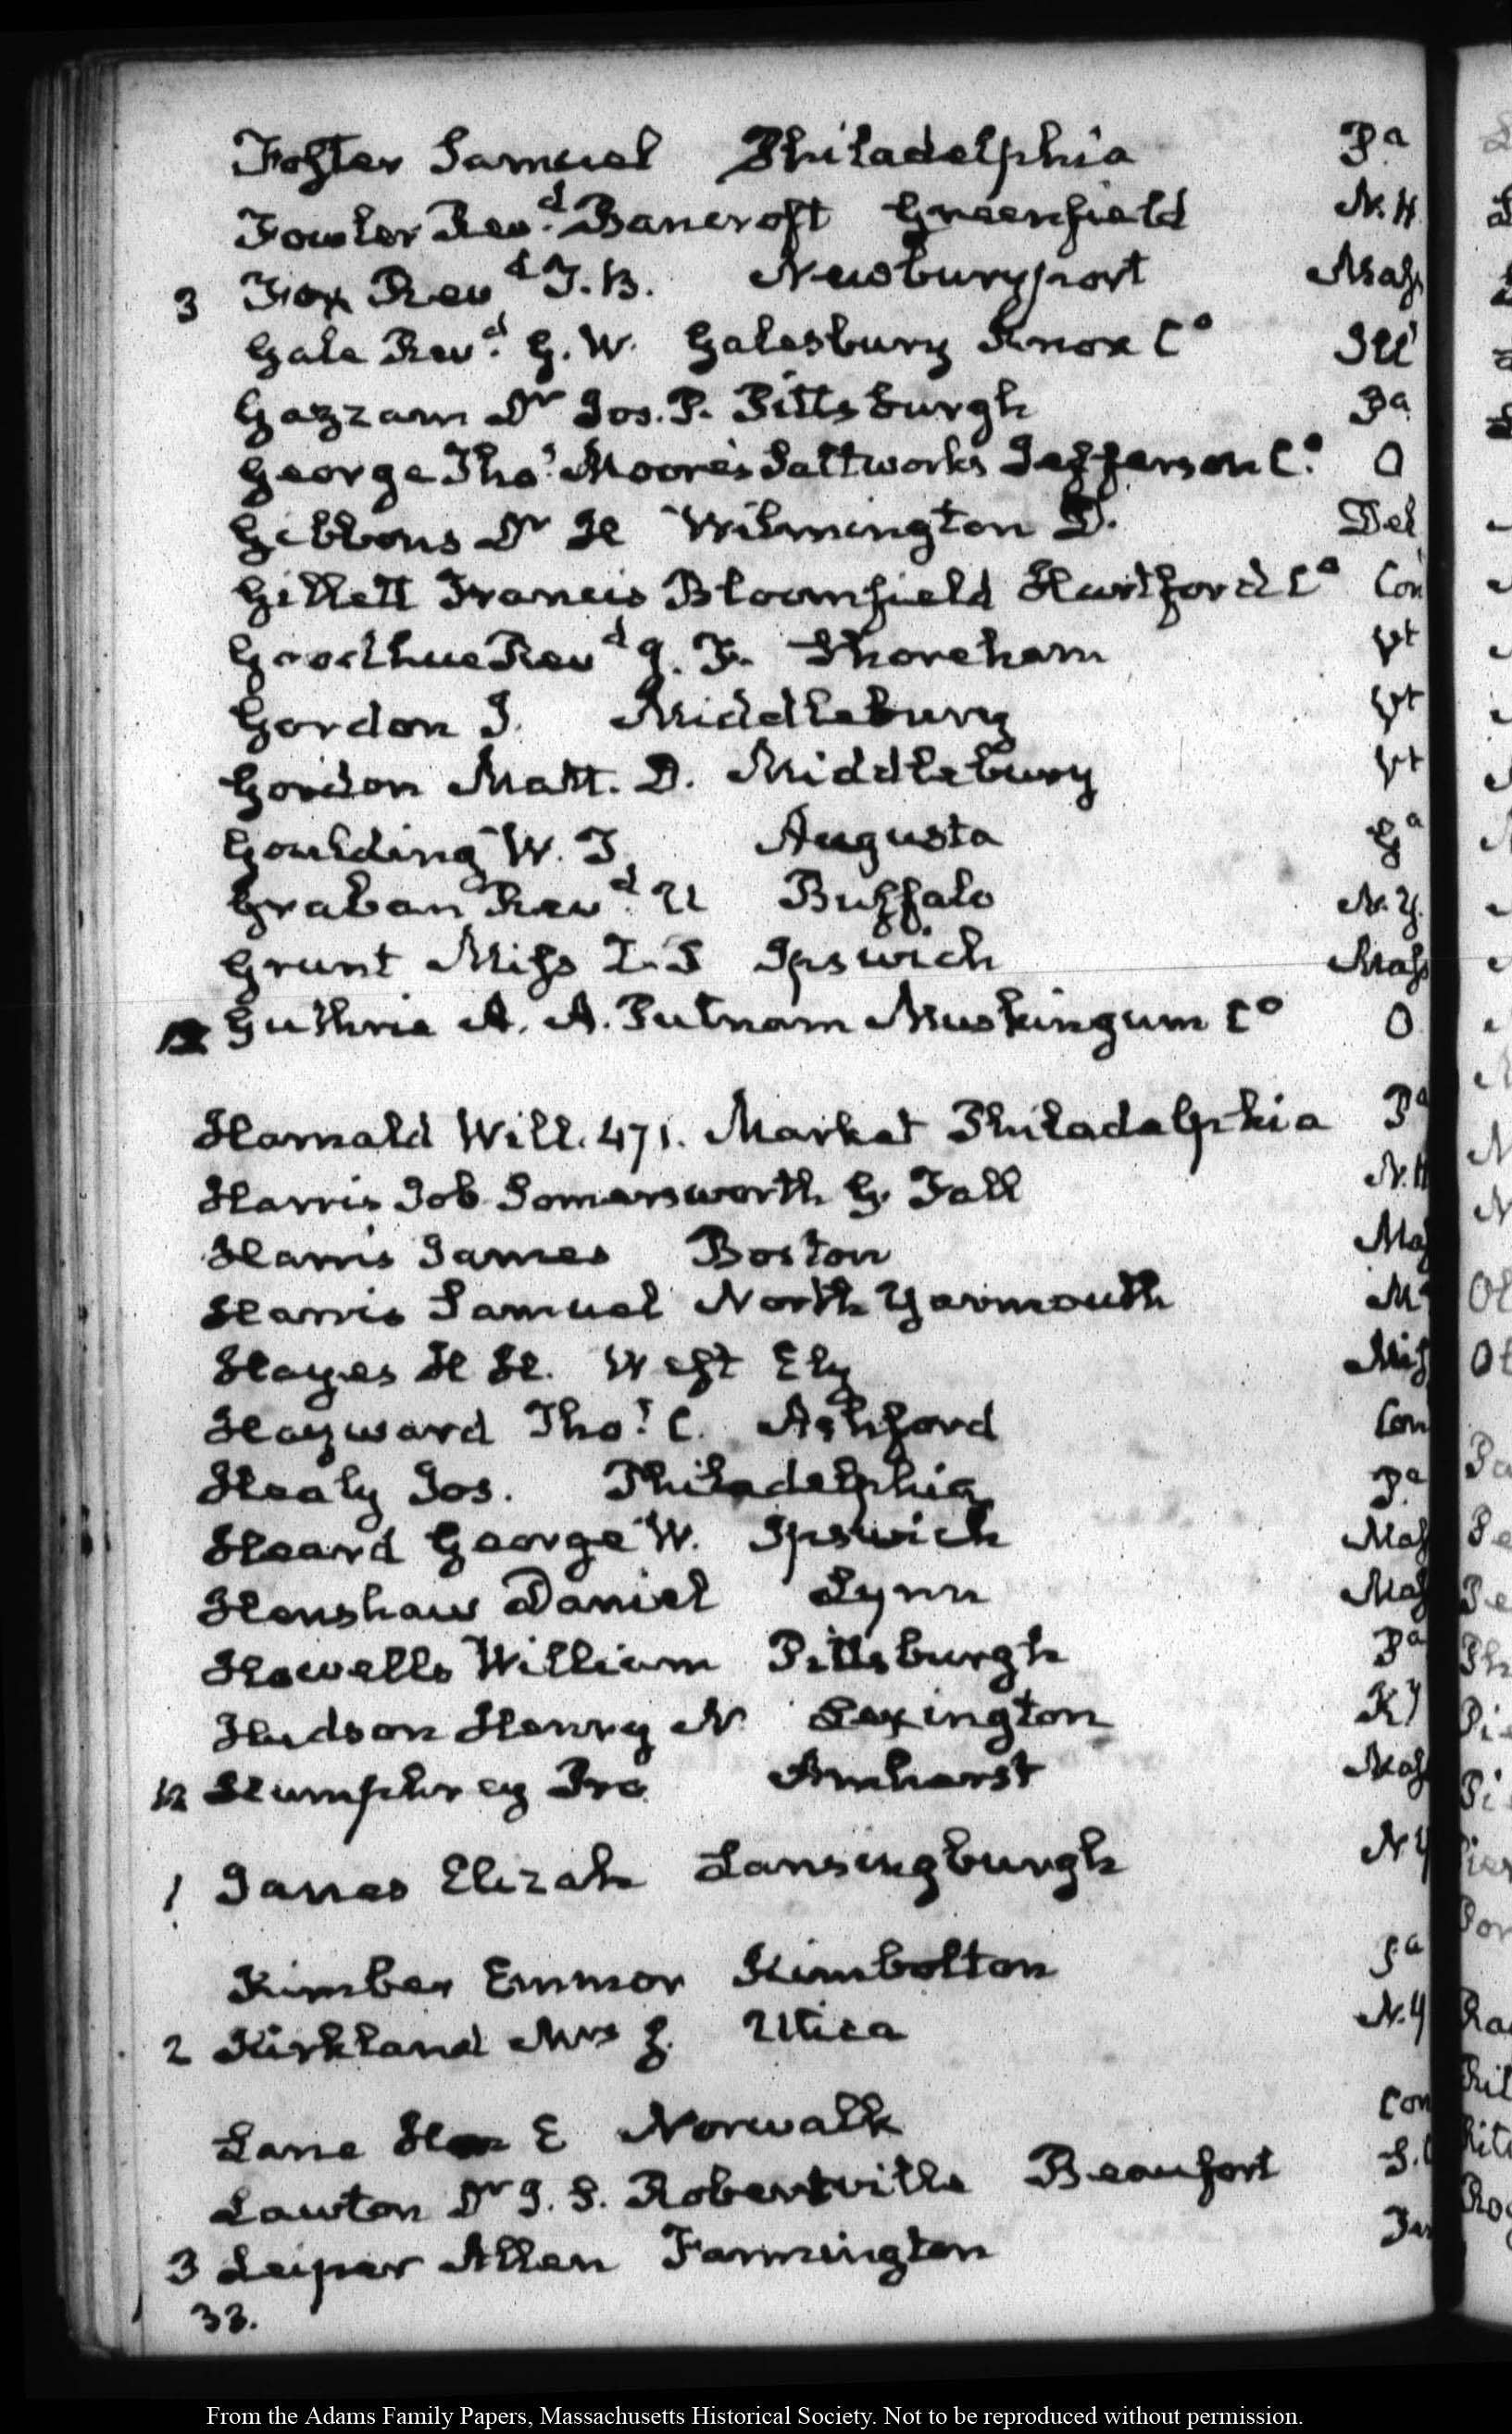 Foster Samuel Philadelphia Pa
Fowler Revd. Bancroft Greenfield N.H
3 Fox Revd T.B. Newburyport Mass
Gale Revd. G. W. Galesburg Knox Co Ill
Gazzam Dr Jos. P. Pittsburgh Pa
George Thos. Moore's Saltworks Jefferson Co. O
Gibbons Dr H Wilmington D. Del
Gillett Francis Bloomfield Hartford Co Con
Goodhue Revd J. F. Shoreham Vt
Gordon J. Middlebury Vt
Gordon Matt. D. Middlebury Vt
Goulding W. T. Augusta Ga
Graban Revd. U Buffalo N.Y.
Grant Miss Z. P Ipswich Mass
12 Guthrie A. A. Putnam Muskingum Co O
Harnald Will. 471. Market Philadelphia Pa
Harris Job Somersworth G. Fall N.H
Harris James Boston Mas
Harris Samuel North Yarmouth M
Hayes H H. West Ely Mis
Hayward Thos. C. Ashford Con
Healy Jos. Philadelphia Pa
Heard George W. Ipswich Mas
Henshaw Daniel Lynn Mas
Howells William Pittsburgh Pa
Hudson Henry N. Lexington Ky
12 Humphrey Pre Amherst Mas
1 Janes Elizah Lansingburgh N Y
Kimber Emmor Kimbolton Pa
2 Kirkland Mrs J. Utica N.Y
Lane E Norwalk Con
Lawton Dr J. S. Robertville Beaufort S.C
3 Leiper Allen Farmington
33.
From the Adams Family Papers, Massachusetts Historical Society. Not to be reproduced without permission.